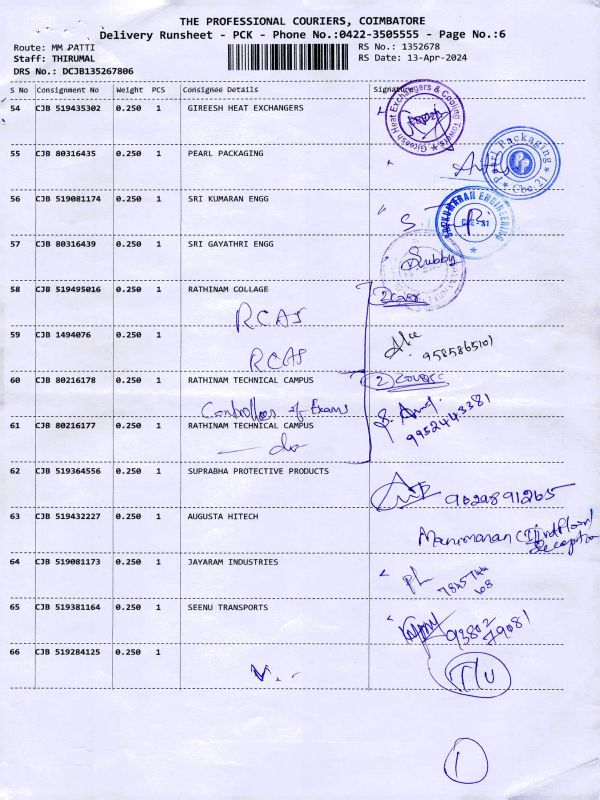 THE PROFESSIONAL COURIERS, COIMBATORE
Delivery Runsheet - PCK - Phone No.:0422-3505555 - Page No.:6
Route: MM PATTI
RS No.: 1352678
Staff: THIRUMAL
RS Date: 13-Apr-2024
DRS No.: DCJB135267806
S No Consignment No Weight PCS Consignee Details Signature
54 CJB 519435302 0.250 1 GIREESH HEAT EXCHANGERS
Gireesh Heat Exchangers & Cooling Towers
55 CJB 80316435 0.250 1 PEARL PACKAGING
Pearl Packaging Cbe-21
56 CJB 519081174 0.250 1 SRI KUMARAN ENGG
SRI KUMARAN ENGINEERING
57 CJB 80316439 0.250 1 SRI GAYATHRI ENGG
58 CJB 519495016 0.250 1 RATHINAM COLLAGE
RCAS 2 cover
59 CJB 1494076 0.250 1
RCAS 9585865101
60 CJB 80216178 0.250 1 RATHINAM TECHNICAL CAMPUS
2 cover
Controller of Exams 9952443381
61 CJB 80216177 0.250 1 RATHINAM TECHNICAL CAMPUS
do
62 CJB 519364556 0.250 1 SUPRABHA PROTECTIVE PRODUCTS
63 CJB 519432227 0.250 1 AUGUSTA HITECH
reception
64 CJB 519081173 0.250 1 JAYARAM INDUSTRIES
65 CJB 519381164 0.250 1 SEENU TRANSPORTS
93802
79081
66 CJB 519284125 0.250 1
1